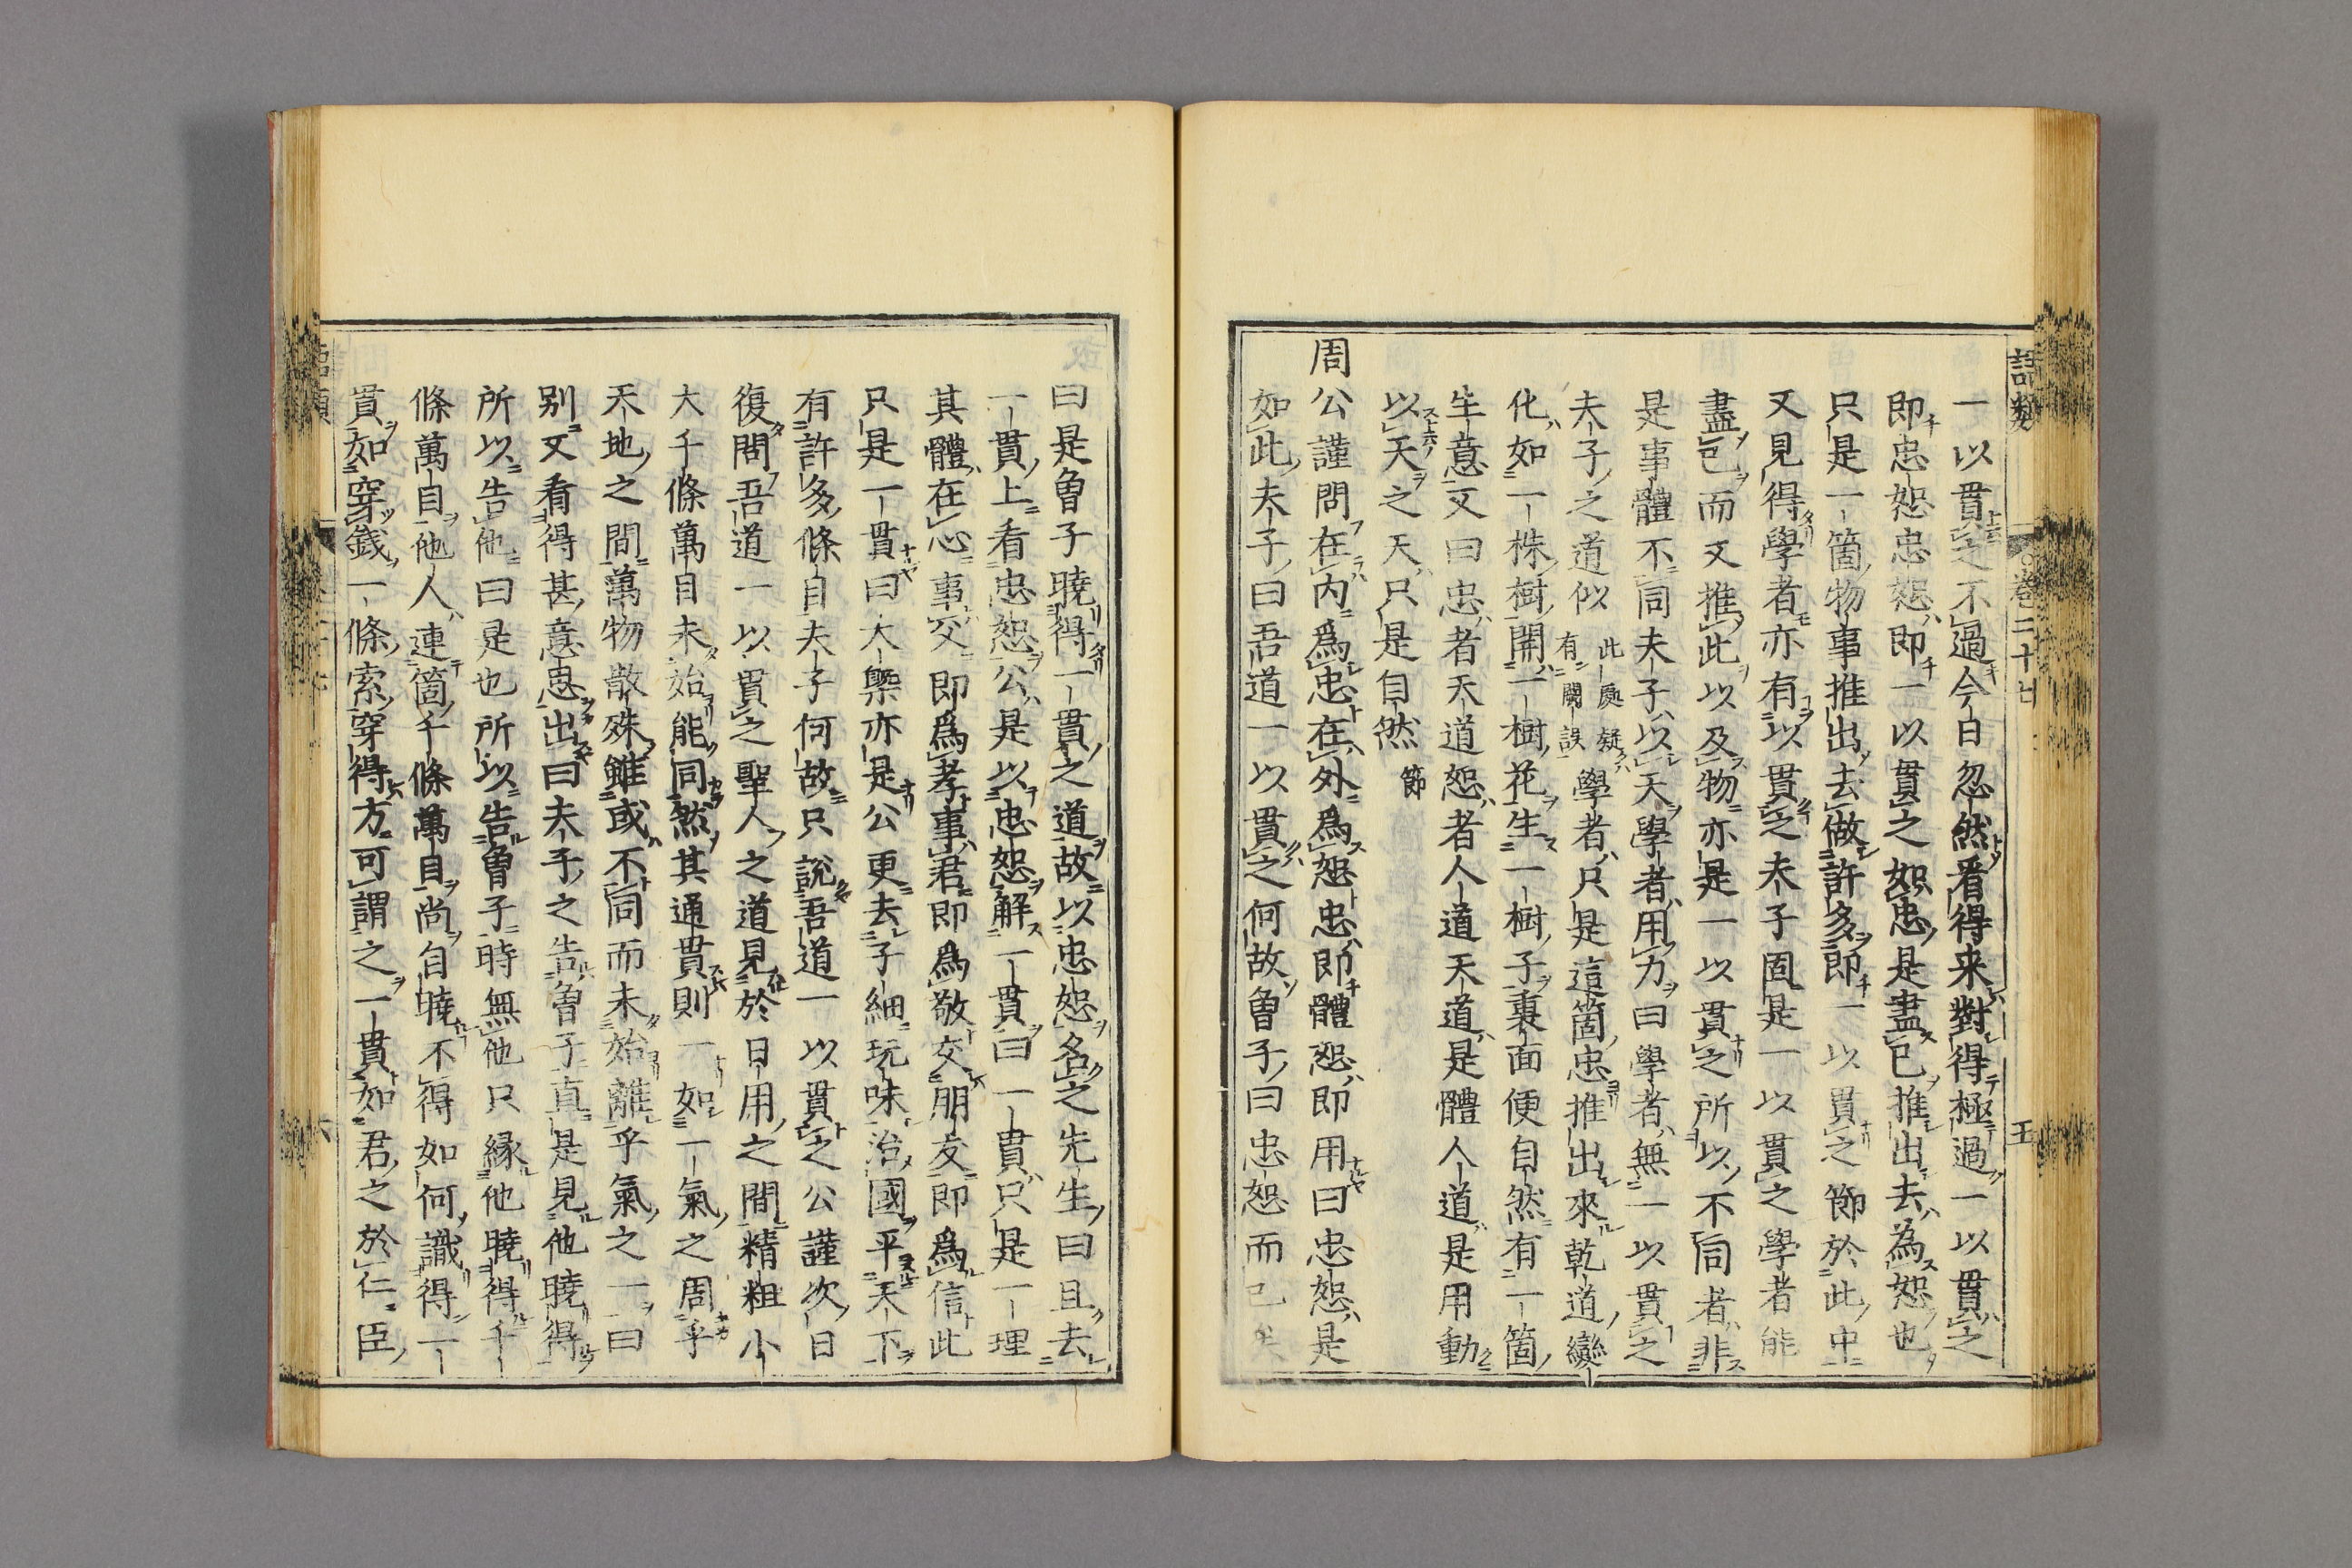 語類 卷二十七 五
一以貫之不過今日忽然看得来對得極過一以貫之
即忠恕忠恕即一以貫之如忠是盡已推出去為恕也
只是一箇物事推出去做許多即一以貫之節於此中
又見得學者亦有以貫之夫子固是一以貫之學者能
盡已而又推此以及物亦是一以貫之所以不同者非
是事體不同夫子以天學者用力曰學者無一以貫之
夫子之道似此處疑有闕誤學者只是這箇忠推出來乾道變
化如一株樹開一樹花生一樹子裏面便自然有一箇
生意又曰忠者天道恕者人道天道是體人道是用動
以天之天只是自然節
周公謹問在内爲忠在外爲恕忠即體恕即用曰忠恕是
如此夫子曰吾道一以貫之何故曾子曰忠恕而已矣
曰是曾子曉得一貫之道故以忠恕名之先生曰且去
一貫上看忠恕公是以忠恕解一貫曰一貫只是一理
其體在心事父即爲孝事君即爲敬交朋友即爲信此
只是一貫曰大槩亦是公更去子細玩味治國平天下
有許多條目夫子何故只說吾道一以貫之公謹次日
復問吾道一以貫之聖人之道見於日用之間精粗小
大千條萬目未始能同然其通貫則一如一氣之周乎
天地之間萬物散殊雖或不同而未始離乎氣之一曰
别又看得甚意思出曰夫子之告曾子直是見他曉得
所以告他曰是也所以告曾子時無他只縁他曉得千
條萬目他人連箇千條萬目尚自曉不得如何識得一
貫如穿錢一條索穿得方可謂之一貫如君之於仁臣
語類
六